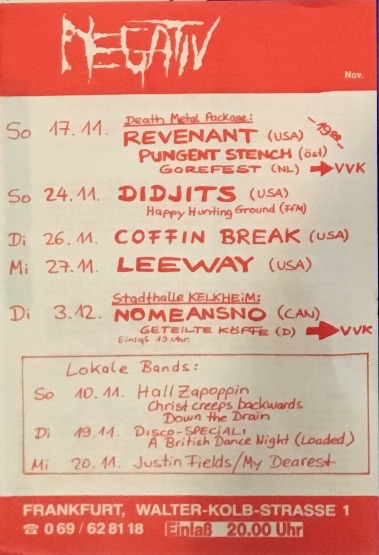 NEGATIV
Nov.
Death Metal Package:
So 17.11. REVENANT (USA)
PUNGENT STENCH (öst)
GOREFEST (NL) → VVK
So 24.11. DIDJITS (USA)
Happy Hunting Ground (FfM)
Di 26.11. COFFIN BREAK (USA)
Mi 27.11. LEEWAY (USA)
Stadthalle KELKHEIM:
Di 3.12. NOMEANSNO (CAN)
GETEILTE KÖPFE (D) → VVK
Einlaß 19 Uhr.
Lokale Bands:
So 10.11. Hall Zapoppin
Christ creeps backwards
Down the Drain
Di 19.11. DISCO-SPECIAL:
A British Dance Night (Loaded)
Mi 20.11. Justin Fields/My Dearest
FRANKFURT, WALTER-KOLB-STRASSE 1
☎ 0 69 / 62 81 18 Einlaß 20.00 Uhr